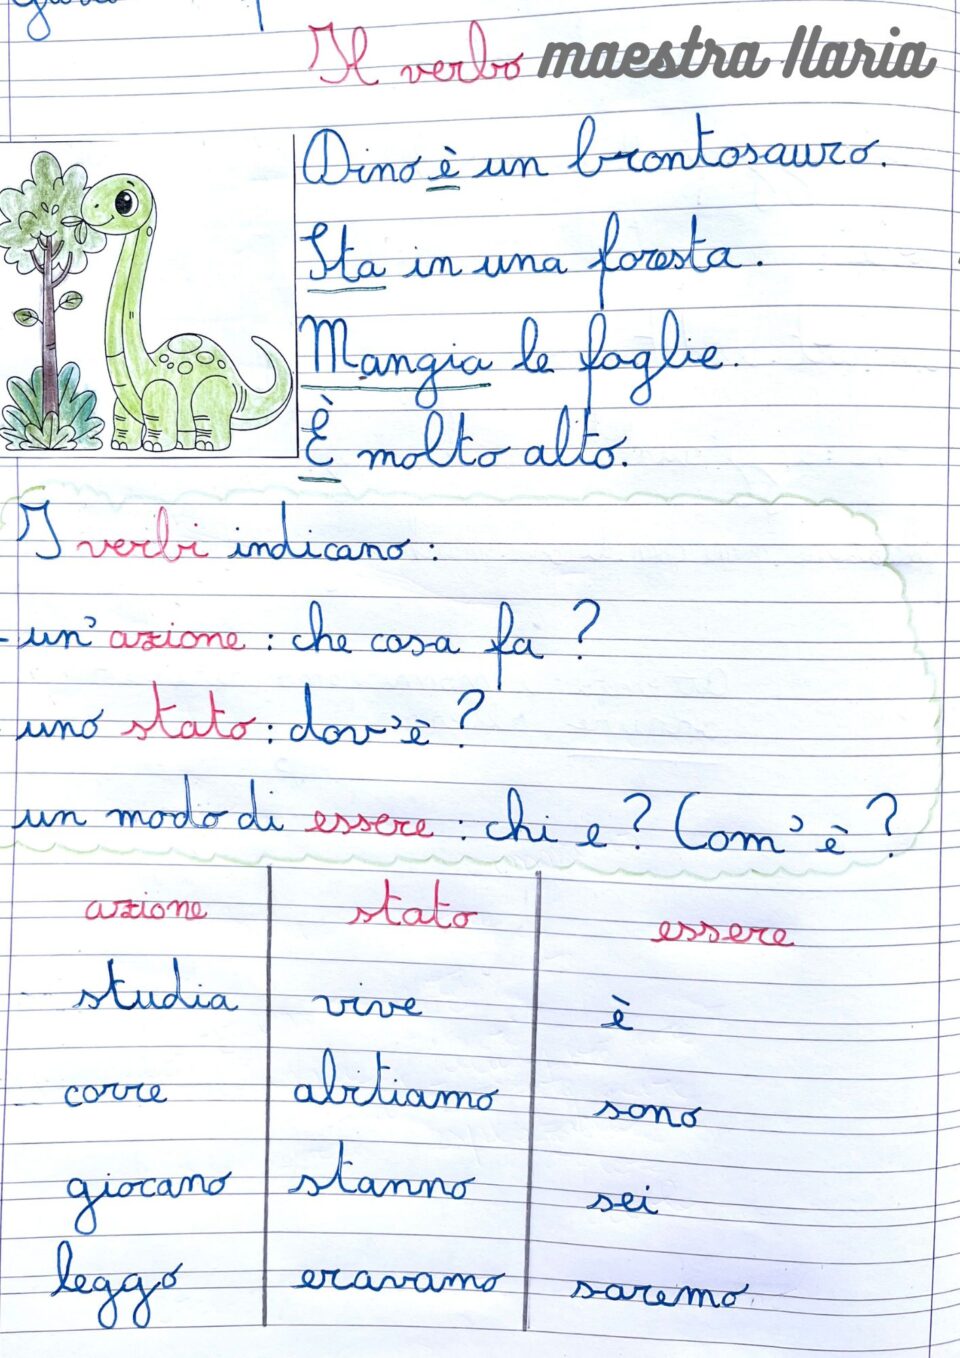 Il verbo maestra Ilaria
Dino è un brontosauro.
Sta in una foresta.
Mangia le foglie.
È molto alto.
I verbi indicano:
- un'azione: che cosa fa?
- uno stato: dov'è?
un modo di essere: chi e? Com'è?
azione stato essere
studia vive è
corre abitiamo sono
giocano stanno sei
leggo eravamo saremo